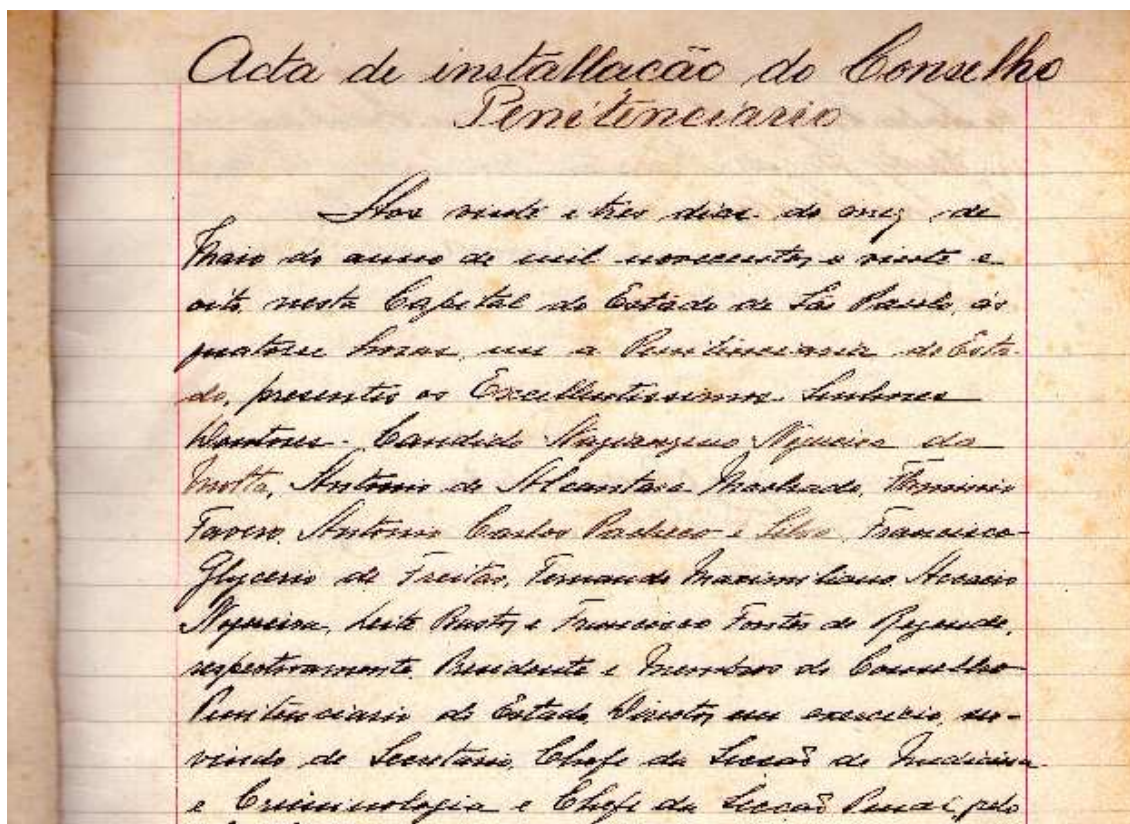 Acta de installacão do Conselho
Penitenciario
Aos vinte e tres dias do mez de
Maio do anno de mil novecentos e vinte e
oito, nesta Capital do Estado de São Paulo, ás
quatorze horas, em a Penitenciaria do Esta-
do, presentes os Excellentissimos Senhores
Doutores Candido Nazianzeno Nogueira da
Motta, Antonio de Alcantara Machado, Flaminio
Favero, Antonio Carlos Pacheco e Silva, Francisco
Glycerio de Freitas, Fernando Maximiliano Acacio
Nogueira, Leite Bastos e Francisco Fontes de Rezende,
respectivamente, Presidente e Membros do Conselho
Penitenciario do Estado, Director em exercicio, ser-
vindo de Secretario, Chefe da Secção de Medicina
e Criminologia e Chefe da Secção Penal, pelo